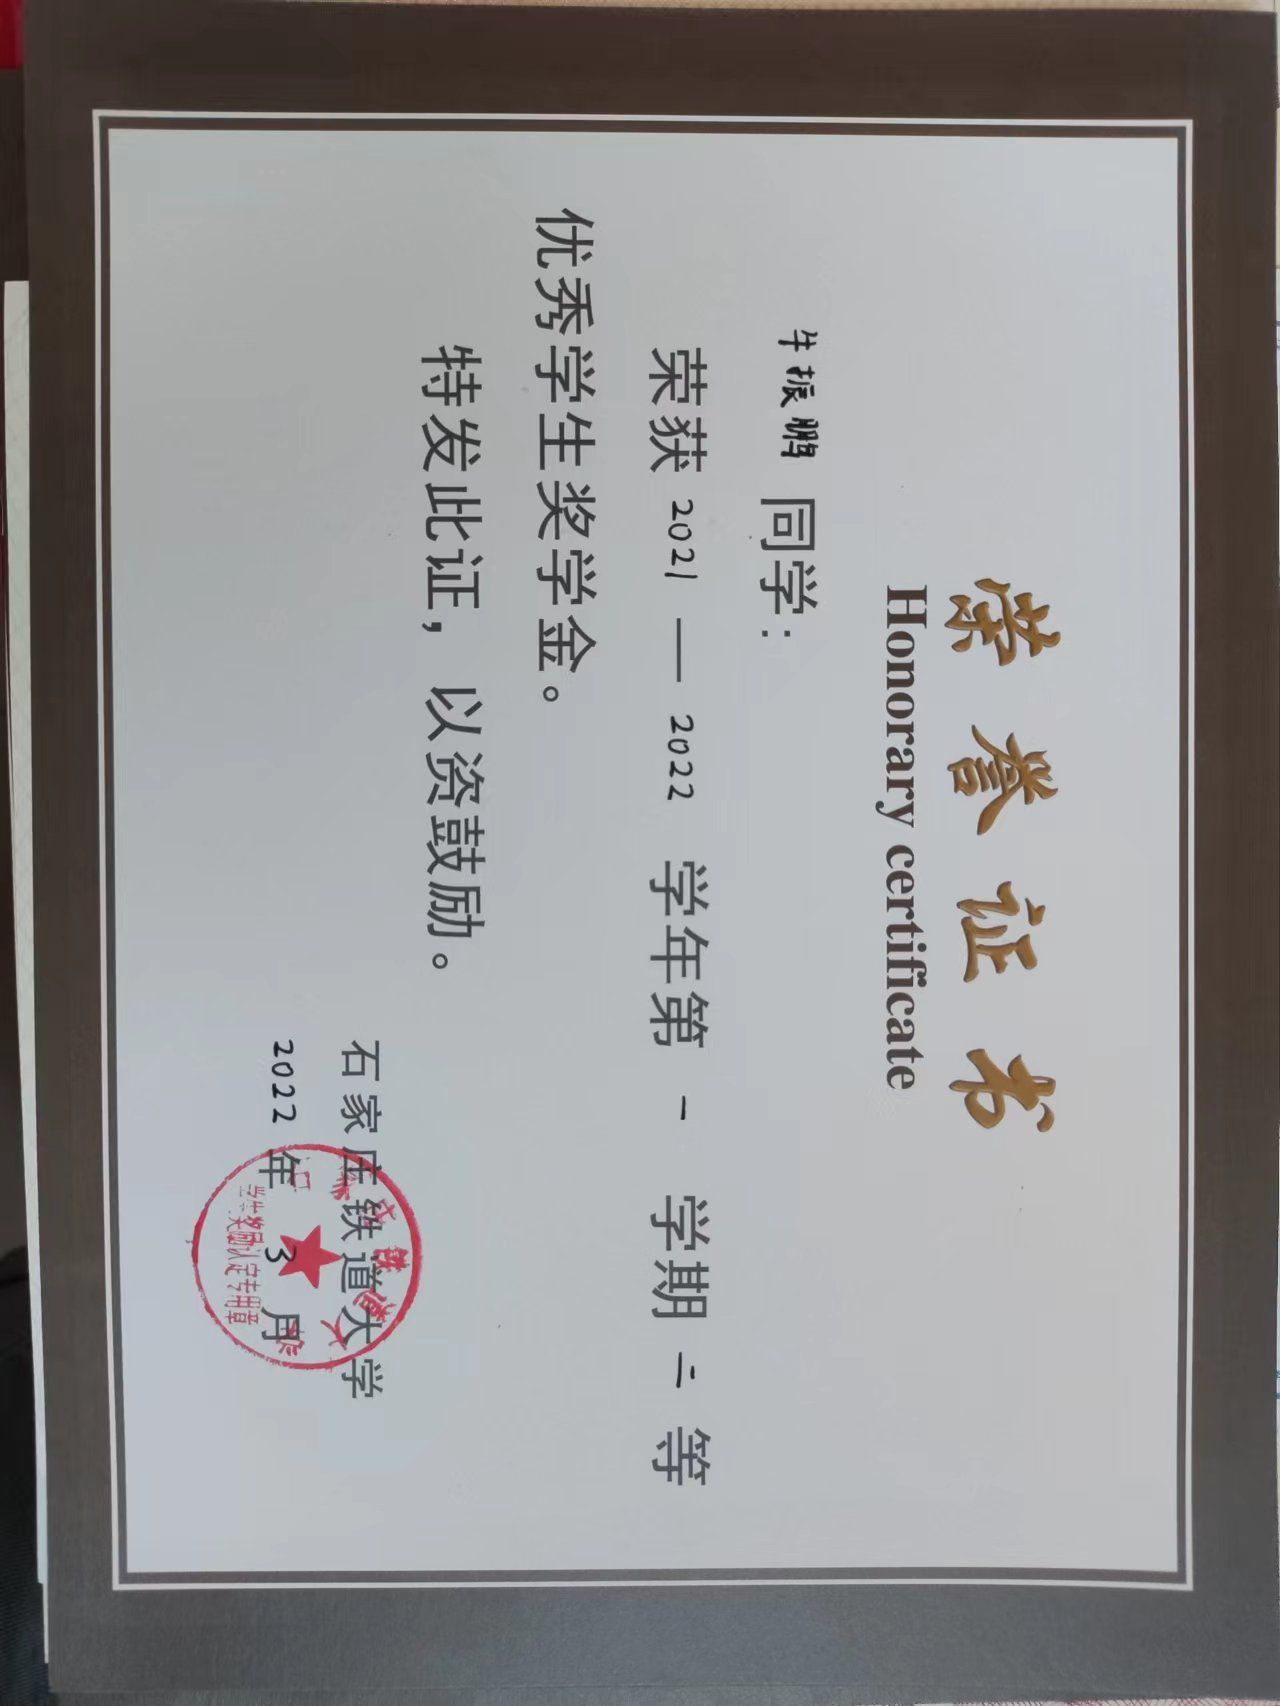 荣誉证书
Honorary certificate
牛振鹏 同学：
荣获 2021 — 2022 学年第 一 学期 二 等
优秀学生奖学金。
特发此证，以资鼓励。
石家庄铁道大学
2022 年 3 月
石家庄铁道大学
学生奖励认定专用章